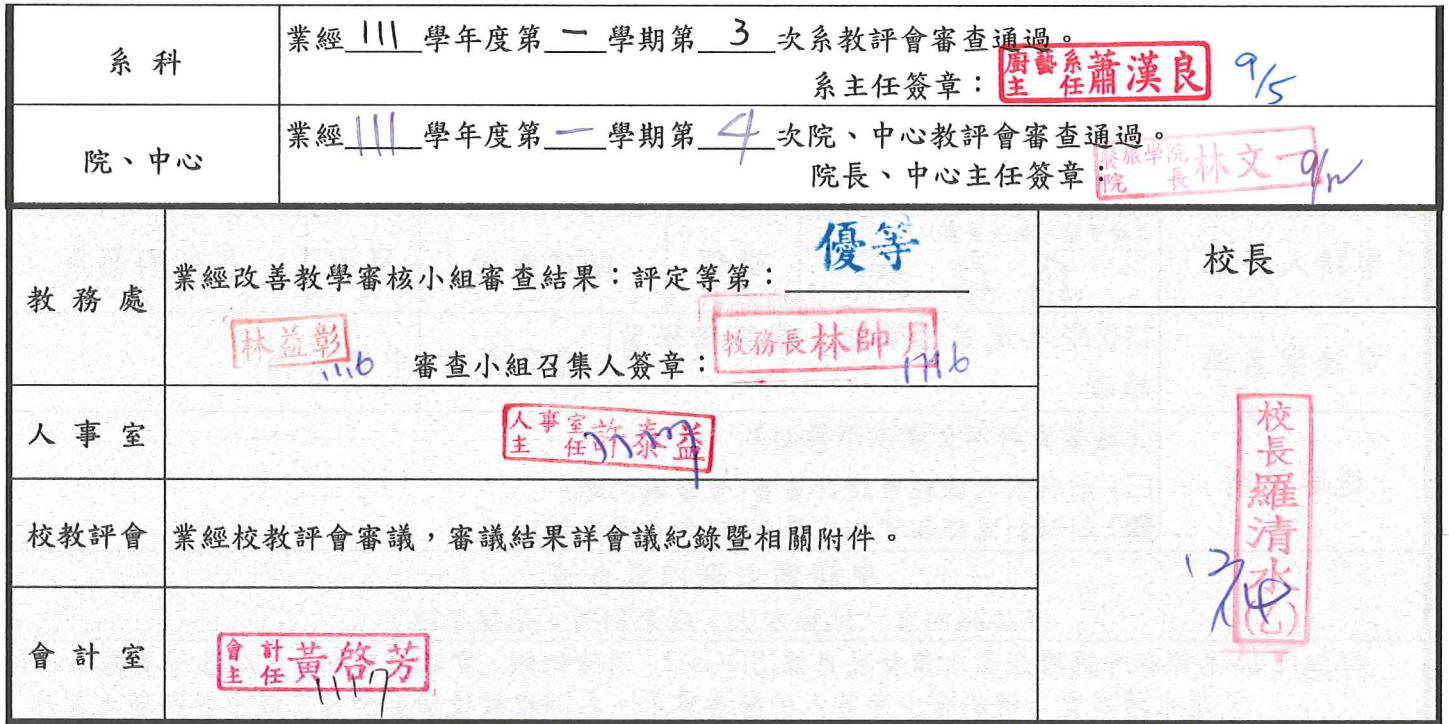 系科
業經 111 學年度第 一 學期第 3 次系教評會審查通過。
系主任簽章：廚藝系主任蕭漢良 9/5
院、中心
業經 111 學年度第 一 學期第 4 次院、中心教評會審查通過。
院長、中心主任簽章：餐旅學院院長林文一 9/12
教務處
業經改善教學審核小組審查結果：評定等第：優等
林益彰 1116 審查小組召集人簽章：教務長林帥月 1116
人事室
人事室主任許泰益
校教評會
業經校教評會審議，審議結果詳會議紀錄暨相關附件。
會計室
會計主任黃啓芳 1117
校長
校長羅清水(乙)